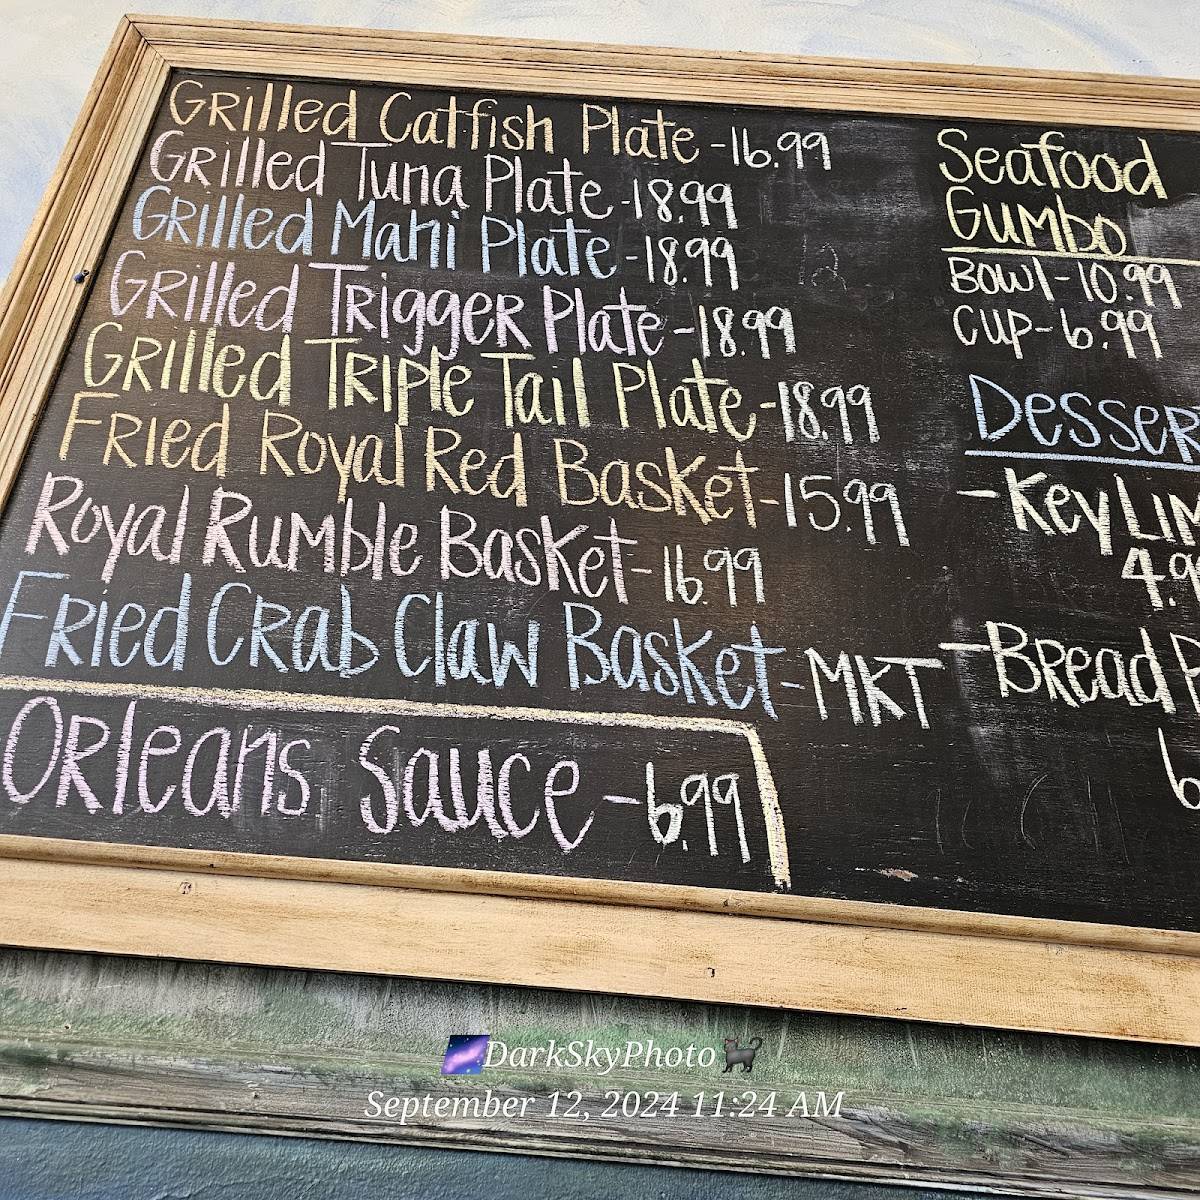 Grilled Catfish Plate - 16.99
Grilled Tuna Plate - 18.99
Grilled Mahi Plate - 18.99
Grilled Trigger Plate - 18.99
Grilled Triple Tail Plate - 18.99
Fried Royal Red Basket - 15.99
Royal Rumble Basket - 16.99
Fried Crab Claw Basket - MKT
Orleans Sauce - 6.99
Seafood
Gumbo
Bowl - 10.99
Cup - 6.99
Desser
- Key Lim
4.9
- Bread P
6
DarkSkyPhoto
September 12, 2024 11:24 AM